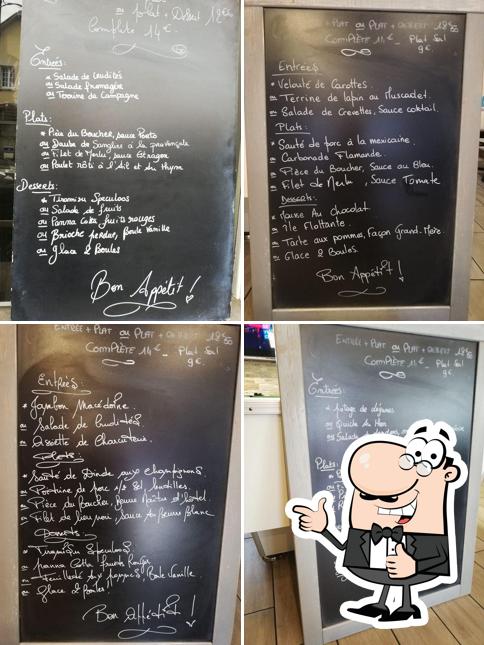 ou plat + Dessert 12€
Complète 14€
Entrées:
* Salade de Crudités
ou Salade fromagère
ou Terrine de Campagne
Plats:
* Pièce du Boucher, sauce Porto
ou Daube de Sanglier à la provençale
ou Filet de Merlu, sauce Estragon
ou Poulet rôti à l'ail et du Thym
Desserts:
* Tiramisu Speculoos
ou Salade de fruits
ou Panna Cotta fruits rouges
ou Brioche perdue, Boule Vanille
ou Glace 2 Boules
Bon Appétit !
PLAT ou PLAT + DESSERT 12€50
COMPLÈTE 14€ - Plat Seul
9€
Entrées
* Velouté de Carottes.
ou Terrine de lapin au Muscadet.
ou Salade de Crevettes, Sauce cocktail.
Plats:
* Sauté de porc à la mexicaine.
ou Carbonade Flamande.
ou Pièce du Boucher, Sauce au Bleu.
ou Filet de Merlu, Sauce Tomate
Desserts:
* Mousse Au chocolat
ou Ile Flottante.
ou Tarte aux pommes, Façon Grand-Mère.
ou Glace 2 Boules.
Bon Appétit !
ENTRÉE + PLAT ou PLAT + DESSERT 12€50
COMPLÈTE 14€ - Plat Seul
9€
Entrées:
* Jambon Macédoine.
ou Salade de Crudités.
ou Assiette de Charcuterie.
Plats:
* Sauté de Dinde aux champignons
ou Poitrine de porc 1/2 Sel lentilles.
ou Pièce du Boucher, Beurre Maître d'Hôtel.
ou Filet de lieu noir, sauce Au Beurre Blanc
Desserts:
* Tiramisu Speculoos
ou panna Cotta fruits Rouges
ou Feuilleté Aux pommes, Boule Vanille.
ou Glace 2 Boules
Bon Appétit !
ENTRÉE + PLAT ou PLAT + DESSERT 12€50
COMPLÈTE 14€ - Plat Seul
9€
Entrées:
* Potage de légumes
ou Quiche
ou Salade
Plats: